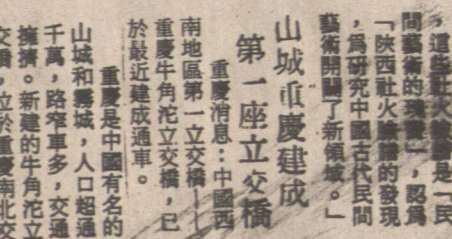 ，這些社火臉譜是「民
間藝術的瑰寶」，認爲
「陝西社火臉譜的發現
，爲研究中國古代民間
藝術開闢了新領域。」
山城重慶建成
第一座立交橋
重慶消息：中國西
南地區第一立交橋—
重慶牛角沱立交橋，已
於最近建成通車。
重慶是中國有名的
山城和霧城，人口超過
千萬，路窄車多，交通
擁擠。新建的牛角沱立
交橋，位於重慶南北交